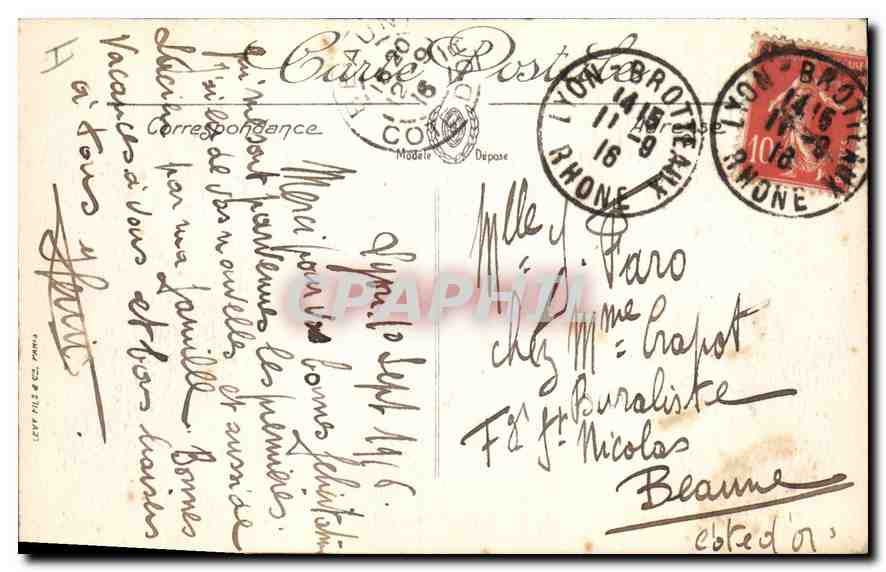 Carte Postale
Correspondance
Adresse
Modèle Déposé
LYON-BROTTEAUX
14 15
11 -9
16
RHONE
LYON-BROTTEAUX
14 15
11 -9
16
RHONE
10
20
12 -9
16
Lyon. 10 Sept 1916.
Merci pour vos bonnes félicitations
qui me sont parvenues les premières.
J'ai eu de vos nouvelles et aussi de
Lucien par ma famille. Bonnes
Vacances à vous et bons baisers
à tous
Mlle J. Paro
chez Mme Crapot
Buraliste
Fg St Nicolas
Beaune
côte d'or
CPAPHIL
LEVY FILS & CO. PARIS